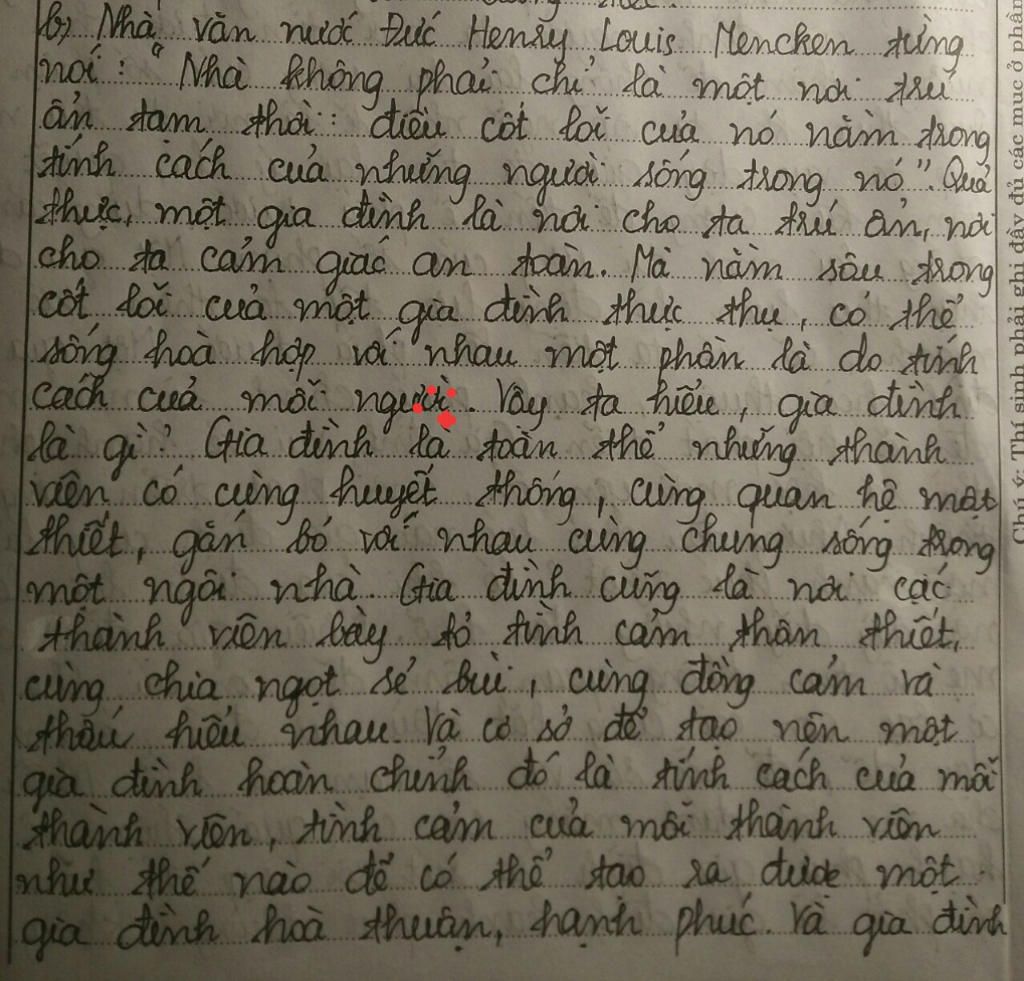 b) Nhà văn nước Đức Henry Louis Mencken từng
nói: "Nhà không phải chỉ là một nơi trú
ẩn tạm thời: điều cốt lõi của nó nằm trong
tính cách của những người sống trong nó". Quả
thực, một gia đình là nơi cho ta trú ẩn, nơi
cho ta cảm giác an toàn. Mà nằm sâu trong
cốt lõi của một gia đình thực thụ, có thể
sống hoà hợp với nhau một phần là do tính
cách của mỗi người. Vậy ta hiểu, gia đình
là gì? Gia đình là toàn thể những thành
viên có cùng huyết thống, cùng quan hệ mật
thiết, gắn bó với nhau cùng chung sống trong
một ngôi nhà. Gia đình cũng là nơi các
thành viên bày tỏ tình cảm thân thiết,
cùng chia ngọt sẻ bùi, cùng đồng cảm và
thấu hiểu nhau. Và cơ sở để tạo nên một
gia đình hoàn chỉnh đó là tính cách của mỗi
thành viên, tình cảm của mỗi thành viên
như thế nào để có thể tạo ra được một
gia đình hoà thuận, hạnh phúc. Và gia đình
Chú ý: Thí sinh phải ghi đầy đủ các mục ở phần